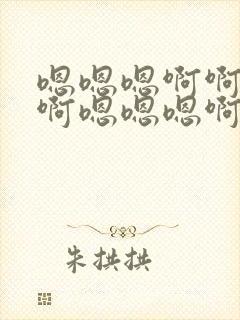 嗯嗯嗯啊啊
啊嗯嗯嗯啊
朱拱拱